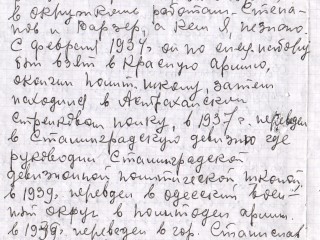 в окружкоме работали Степа-
нов и Варзер, а кем я, не знаю.
С февраля 193 он по спецнабору
был взят в Красную армию,
окончил полит. школу, затем
находился в Астраханском
стрелковом полку, в 1937 г. переведен
в Сталинградскую дивизию где
руководил Сталинградской
дивизионной политической школой,
в 1939 переведен в одесский воен-
ный округ в политодел армии.
в 1939 переведен в гор. Станислав